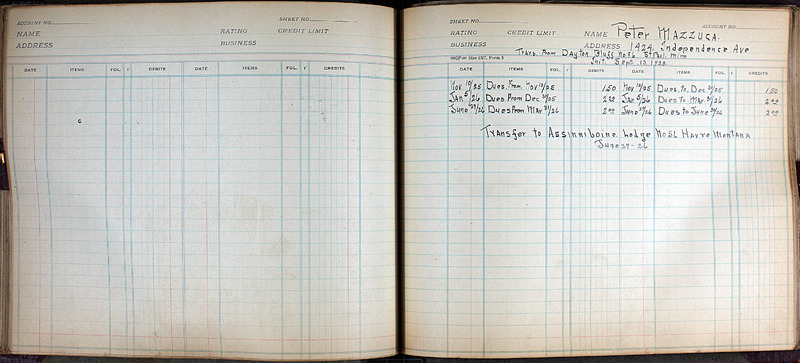 SHEET NO.
ACCOUNT NO.
NAME RATING CREDIT LIMIT
ADDRESS BUSINESS
DATE ITEMS FOL. √ DEBITS DATE ITEMS FOL. √ CREDITS
SHEET NO.
ACCOUNT NO.
RATING CREDIT LIMIT NAME Peter Mazzuca.
BUSINESS ADDRESS 1424 Independence Ave
Trans. From Dayton Bluff No 86 St Paul. Minn
Init. Sept. 13. 1922.
DATE ITEMS FOL. √ DEBITS DATE ITEMS FOL. √ CREDITS
Nov 10/25 Dues. From Nov 10/25 1 50 Nov 10/25 Dues. to. Dec 31/25 1 50
Jan 5/26 Dues From Dec 31/25 2 00 Jan 5/26 Dues To Mar 31/26 2 00
June 29/26 Dues From Mar 31/26 2 00 June Dues to June 30/26 2 00
Transfer to Assinniboine Lodge No 56 Havre Montana
June 29 - 26